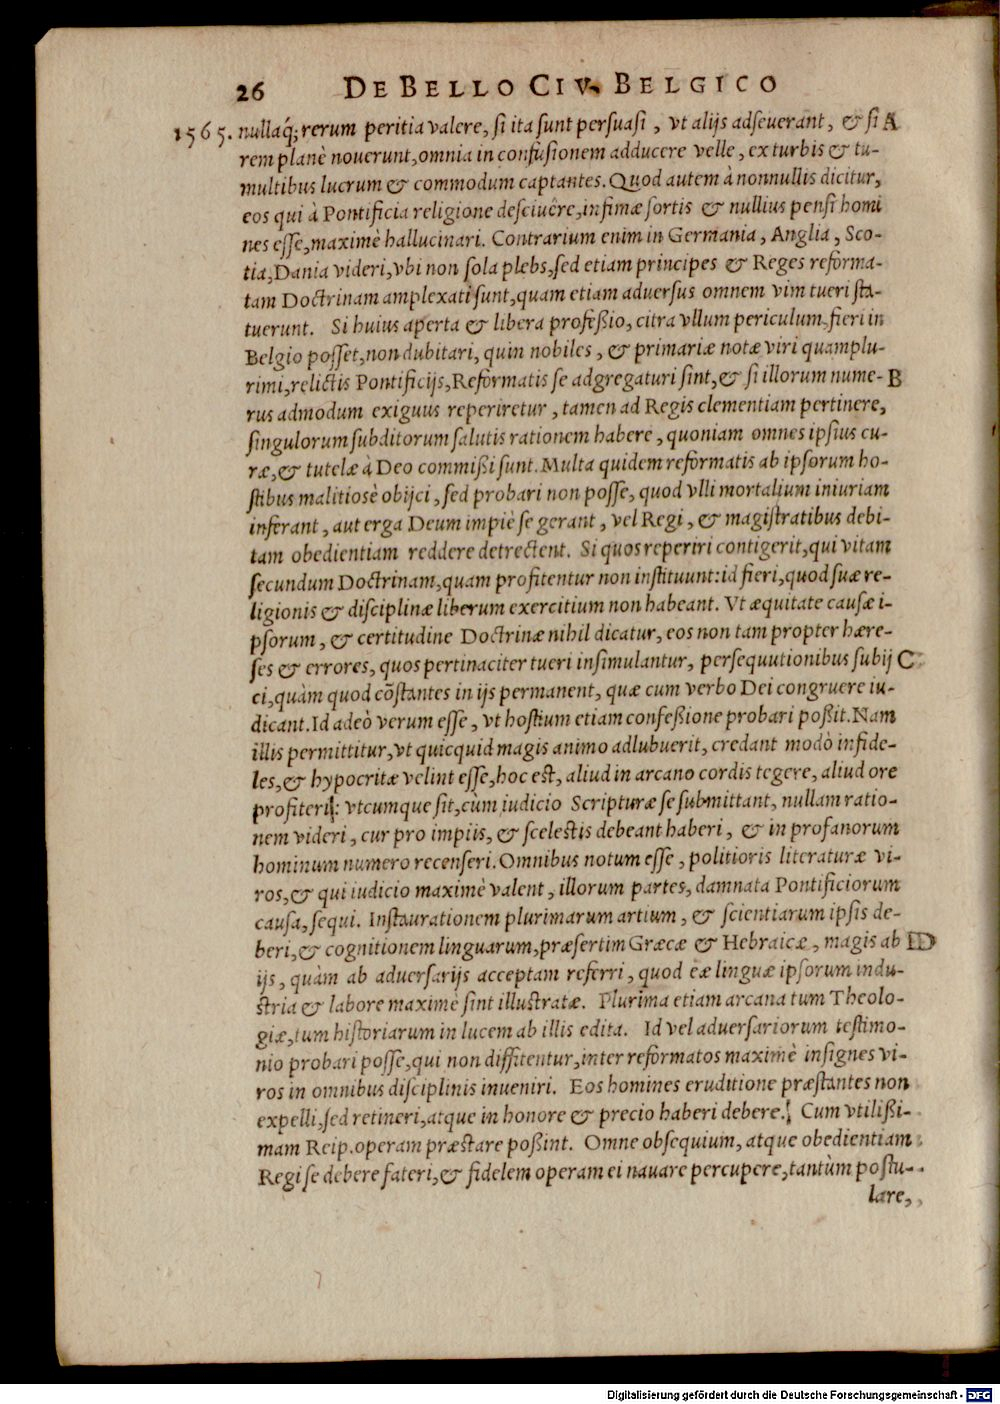 26 DE BELLO CIV. BELGICO
1565. nullaq́; rerum peritia valere, si ita sunt persuasi, vt alijs adseuerant, & si A
rem planè nouerunt, omnia in confusionem adducere velle, ex turbis & tu-
multibus lucrum & commodum captantes. Quod autem à nonnullis dicitur,
eos qui à Pontificia religione desciuêre, infimæ sortis & nullius pensi homi
nes esse, maximè hallucinari. Contrarium enim in Germania, Anglia, Sco-
tia, Dania videri, vbi non sola plebs, sed etiam principes & Reges reforma-
tam Doctrinam amplexati sunt, quam etiam aduersus omnem vim tueri sta-
tuerunt. Si huius aperta & libera profeßio, citra vllum periculum, fieri in
Belgio posset, non dubitari, quin nobiles, & primariæ notæ viri quamplu-
rimi, relictis Pontificijs, Reformatis se adgregaturi sint, & si illorum nume- B
rus admodum exiguus reperiretur, tamen ad Regis clementiam pertinere,
singulorum subditorum salutis rationem habere, quoniam omnes ipsius cu-
ræ, & tutelæ à Deo commißi sunt. Multa quidem reformatis ab ipsorum ho-
stibus malitiosè obijci, sed probari non posse, quod vlli mortalium iniuriam
inferant, aut erga Deum impiè se gerant, vel Regi, & magistratibus debi-
tam obedientiam reddere detrectent. Si quos reperiri contigerit, qui vitam
secundum Doctrinam, quam profitentur non instituunt: id fieri, quod suæ re-
ligionis & disciplinæ liberum exercitium non habeant. Vt æquitate causæ i-
psorum, & certitudine Doctrinæ nihil dicatur, eos non tam propter hære-
ses & errores, quos pertinaciter tueri insimulantur, persequutionibus subij C
ci, quàm quod cõstantes in ijs permanent, quæ cum verbo Dei congruere iu-
dicant. Id adeò verum esse, vt hostium etiam confeßione probari poßit. Nam
illis permittitur, vt quicquid magis animo adlubuerit, credant modò infide-
les, & hypocritæ velint esse, hoc est, aliud in arcano cordis tegere, aliud ore
profiteri: vtcumque sit, cùm iudicio Scripturæ se submittant, nullam ratio-
nem videri, cur pro impiis, & scelestis debeant haberi, & in profanorum
hominum numero recenseri. Omnibus notum esse, politioris literaturæ vi-
ros, & qui iudicio maximè valent, illorum partes, damnata Pontificiorum
causa, sequi. Instaurationem plurimarum artium, & scientiarum ipsis de-
beri, & cognitionem linguarum, præsertim Græcæ & Hebraicæ, magis ab D
ijs, quàm ab aduersarijs acceptam referri, quod eæ linguæ ipsorum indu-
stria & labore maximè sint illustratæ. Plurima etiam arcana tum Theolo-
giæ, tum historiarum in lucem ab illis edita. Id vel aduersariorum testimo-
nio probari posse, qui non diffitentur, inter reformatos maximè insignes vi-
ros in omnibus disciplinis inueniri. Eos homines eruditione præstantes non
expelli, sed retineri, atque in honore & precio haberi debere. Cum vtilißi-
mam Reip. operam præstare poßint. Omne obsequium, atque obedientiam
Regi se debere fateri, & fidelem operam ei nauare percupere, tantùm postu-
lare,
Digitalisierung gefördert durch die Deutsche Forschungsgemeinschaft - DFG